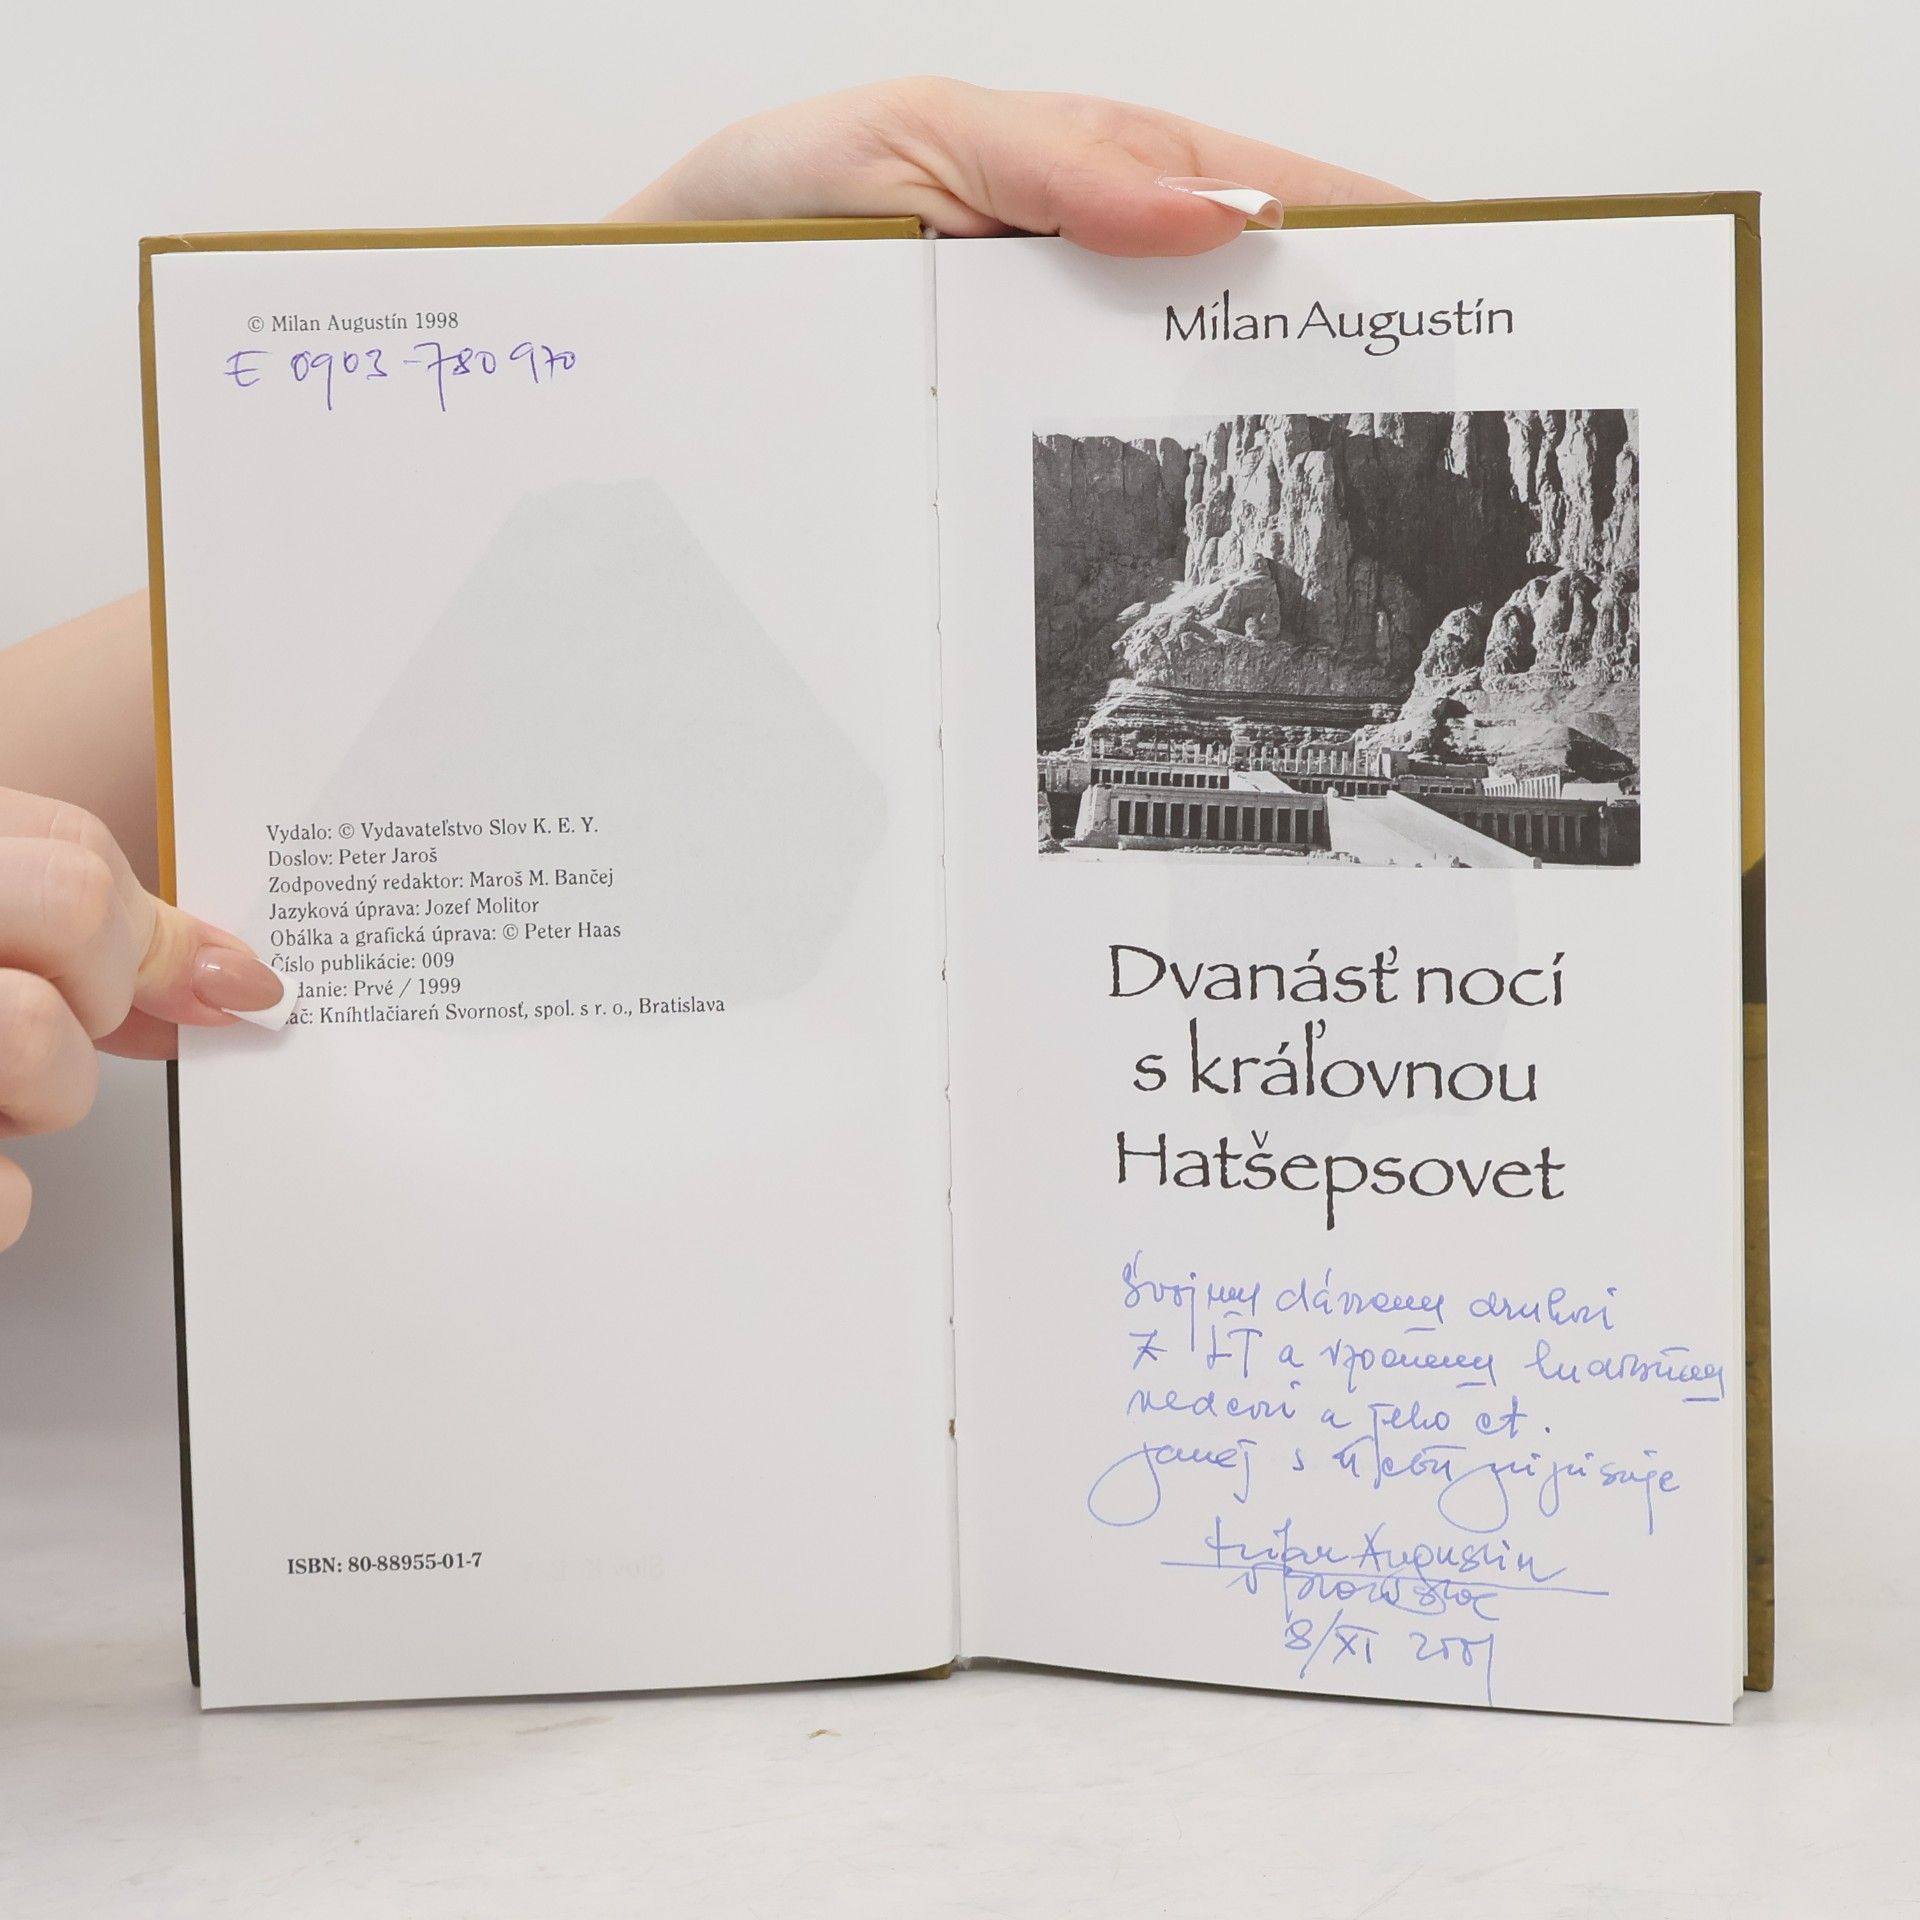 © Milan Augustín 1998
E 0903-780970
Vydalo: © Vydavateľstvo Slov K. E. Y.
Doslov: Peter Jaroš
Zodpovedný redaktor: Maroš M. Bančej
Jazyková úprava: Jozef Molitor
Obálka a grafická úprava: © Peter Haas
Číslo publikácie: 009
danie: Prvé / 1999
ač: Kníhtlačiareň Svornosť, spol. s r. o., Bratislava
ISBN: 80-88955-01-7
Milan Augustín
Dvanásť nocí
s kráľovnou
Hatšepsovet
Svojmu dávnemu druhovi
z LT a
vedcovi a jeho ct.
s úctou pripisuje
Milan Augustín
v
8/XI 2001